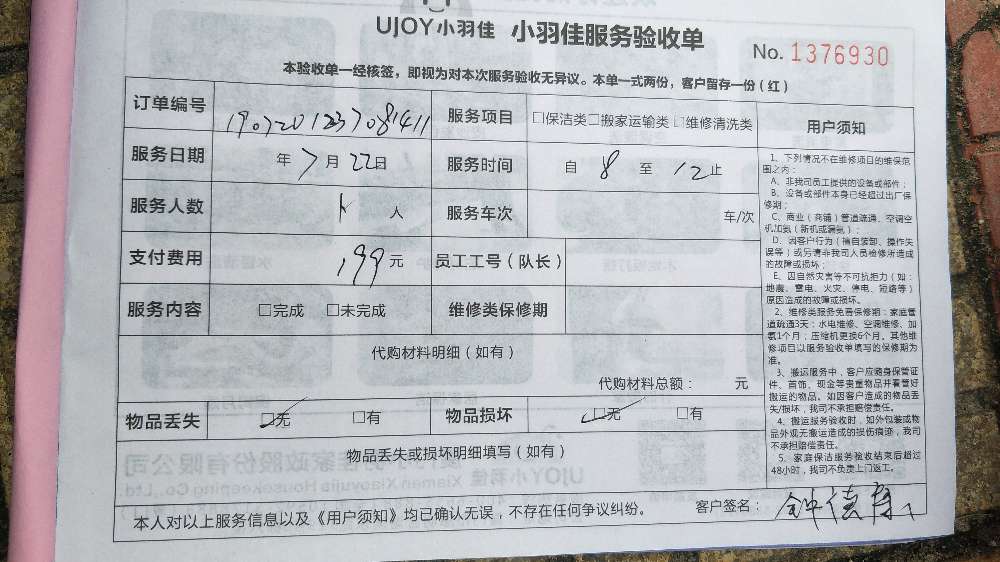 UJOY小羽佳 小羽佳服务验收单
No. 1376930
本验收单一经核签，即视为对本次服务验收无异议。本单一式两份，客户留存一份（红）
订单编号 1907201237081411 服务项目 □保洁类□搬家运输类 □维修清洗类
服务日期 年7月22日 服务时间 自 8 至 12止
服务人数 人 服务车次 车/次
支付费用 199元 员工工号（队长）
服务内容 □完成 □未完成 维修类保修期
代购材料明细（如有）
代购材料总额： 元
物品丢失 □无 □有 物品损坏 □无 □有
物品丢失或损坏明细填写（如有）
本人对以上服务信息以及《用户须知》均已确认无误，不存在任何争议纠纷。 客户签名：钟德
用户须知
1、下列情况不在维修项目的维保范
围之内：
A、非我司员工提供的设备或部件；
B、设备或部件本身已经超过出厂保
修期；
C、商业（商铺）管道疏通、空调空
机加氨（新机或漏氨）；
D、因客户行为（擅自装卸、操作失
误等）或另请非我司人员检修所造成
的故障或损坏；
E、因自然灾害等不可抗拒力（如：
地震、雷电、火灾、停电、短路等）
原因造成的故障或损坏。
2、维修类服务免费保修期：家庭管
道疏通3天；水电维修、空调维修、加
氨1个月；压缩机更换6个月。其他维
修项目以服务验收单填写的保修期为
准。
3、搬运服务中，客户应随身保管证
件、首饰、现金等贵重物品并看管好
搬运的物品。如因客户造成的物品丢
失/损坏，我司不承担赔偿责任。
4、搬运服务验收时，如外包装或物
品外观无搬运造成的损伤痕迹，我司
不承担赔偿责任。
5、家庭保洁服务验收结束后超过
48小时，我司不负责上门返工。